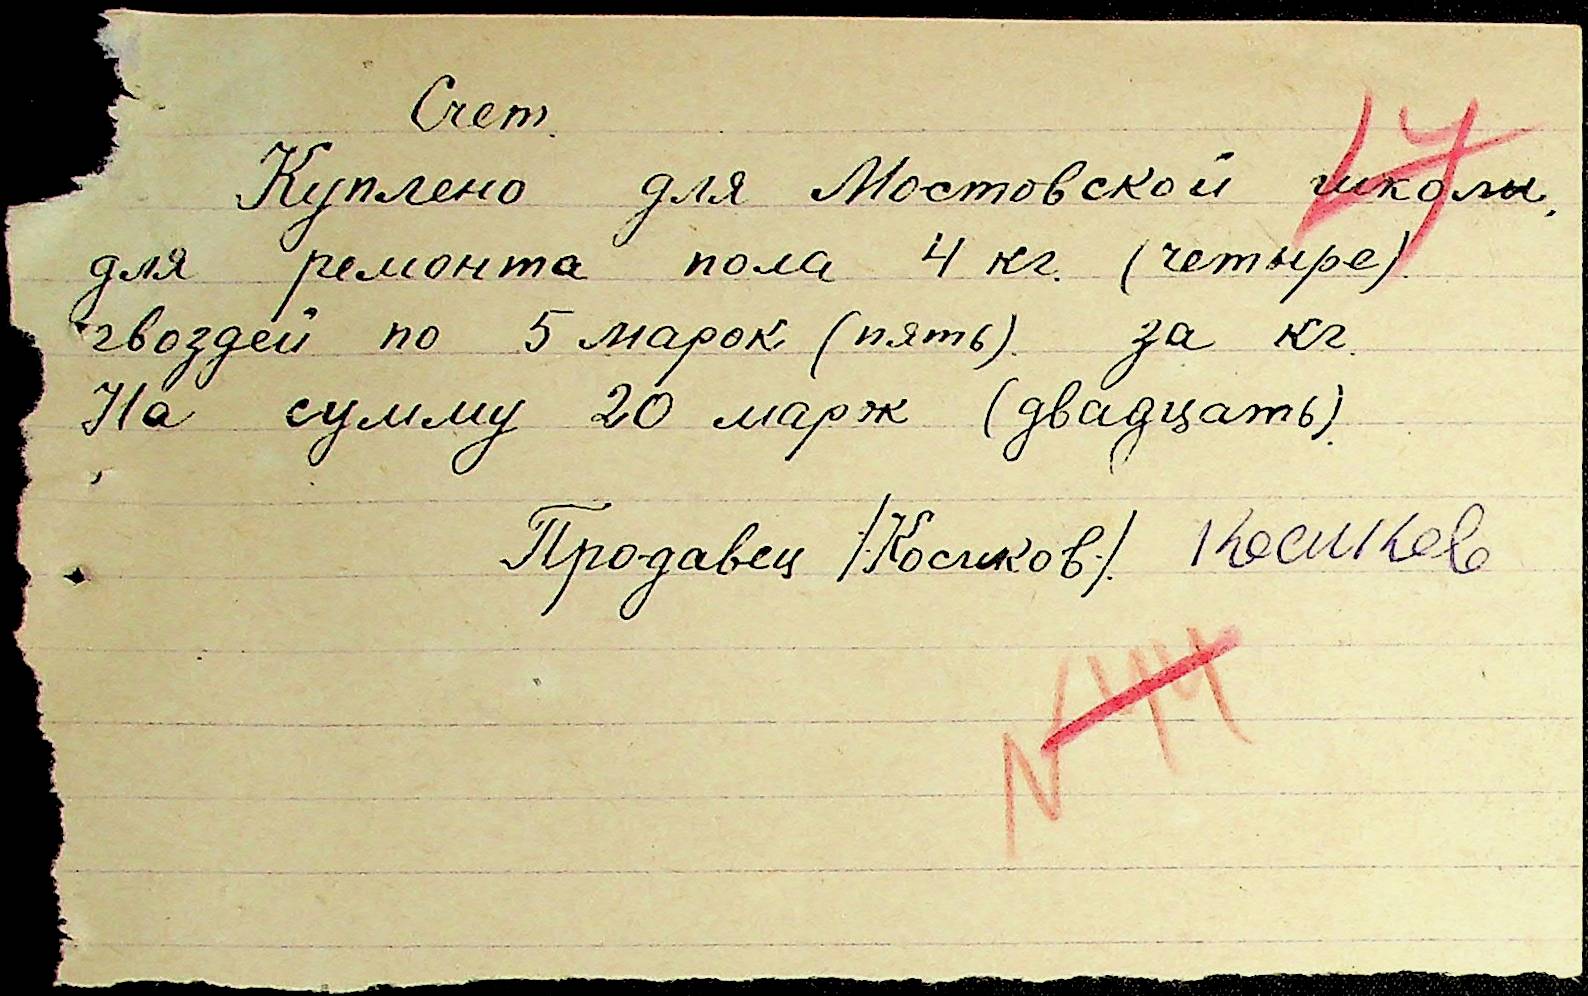 Счет.
Куплено для Мостовской школы,
для ремонта пола 4 кг. (четыре)
гвоздей по 5 марок (пять) за кг.
На сумму 20 марок (двадцать).
Продавец /Косиков/. Косиков
N 44